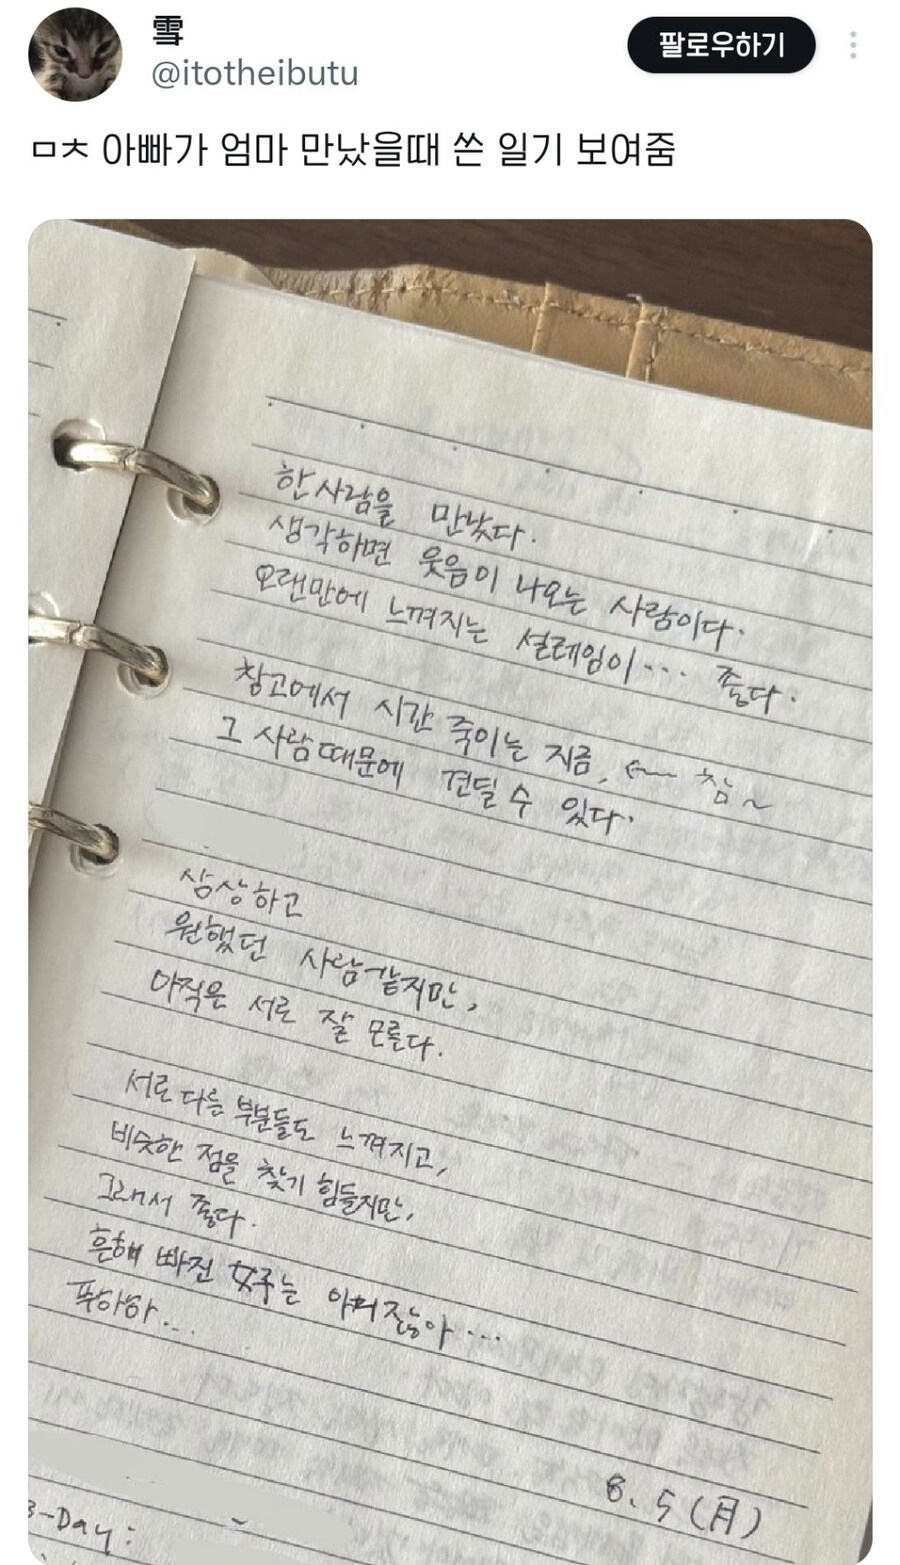 雪
@itotheibutu
팔로우하기
ㅁㅊ 아빠가 엄마 만났을때 쓴 일기 보여줌
한 사람을 만났다.
생각하면 웃음이 나오는 사람이다.
오랜만에 느껴지는 설레임이··· 좋다.
창고에서 시간 죽이는 지금, ← 참~
그 사람때문에 견딜 수 있다.
상상하고
원했던 사람같지만,
아직은 서로 잘 모른다.
서로 다른 부분들도 느껴지고,
비슷한 점을 찾기 힘들지만,
그래서 좋다.
흔해 빠진 女주는 아니잖아···
푸하하...
8. 5 (月)
B-Day: